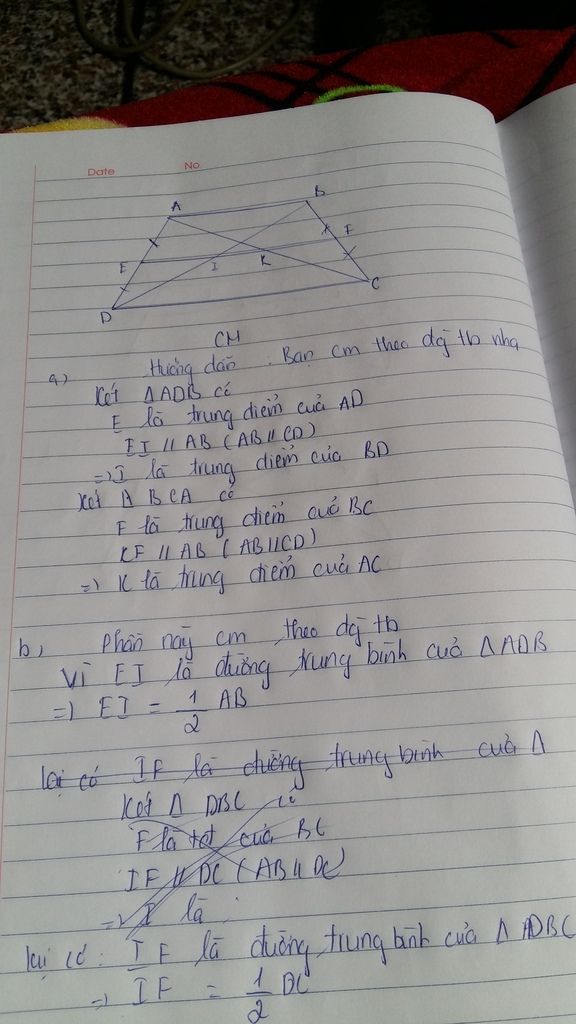 Date No
A B
E F
I K
D C
CM
a) Hướng dẫn : Bạn cm theo đg tb nha
Xét ΔADB có
E là trung điểm của AD
EI // AB (AB // CD)
=> I là trung điểm của BD
Xét Δ BCA có
F là trung điểm của BC
KF // AB (AB//CD)
=> K là trung điểm của AC
b, Phần này cm theo đg tb
Vì EI là đường trung bình của ΔADB
=> EI = 1/2 AB
lại có IF là đường trung bình của Δ
Xét Δ DBC có
F là tđ của BC
IF // DC (AB // DC)
=> I là
lại có : IF là đường trung bình của Δ ADBC
=> IF = 1/2 DC